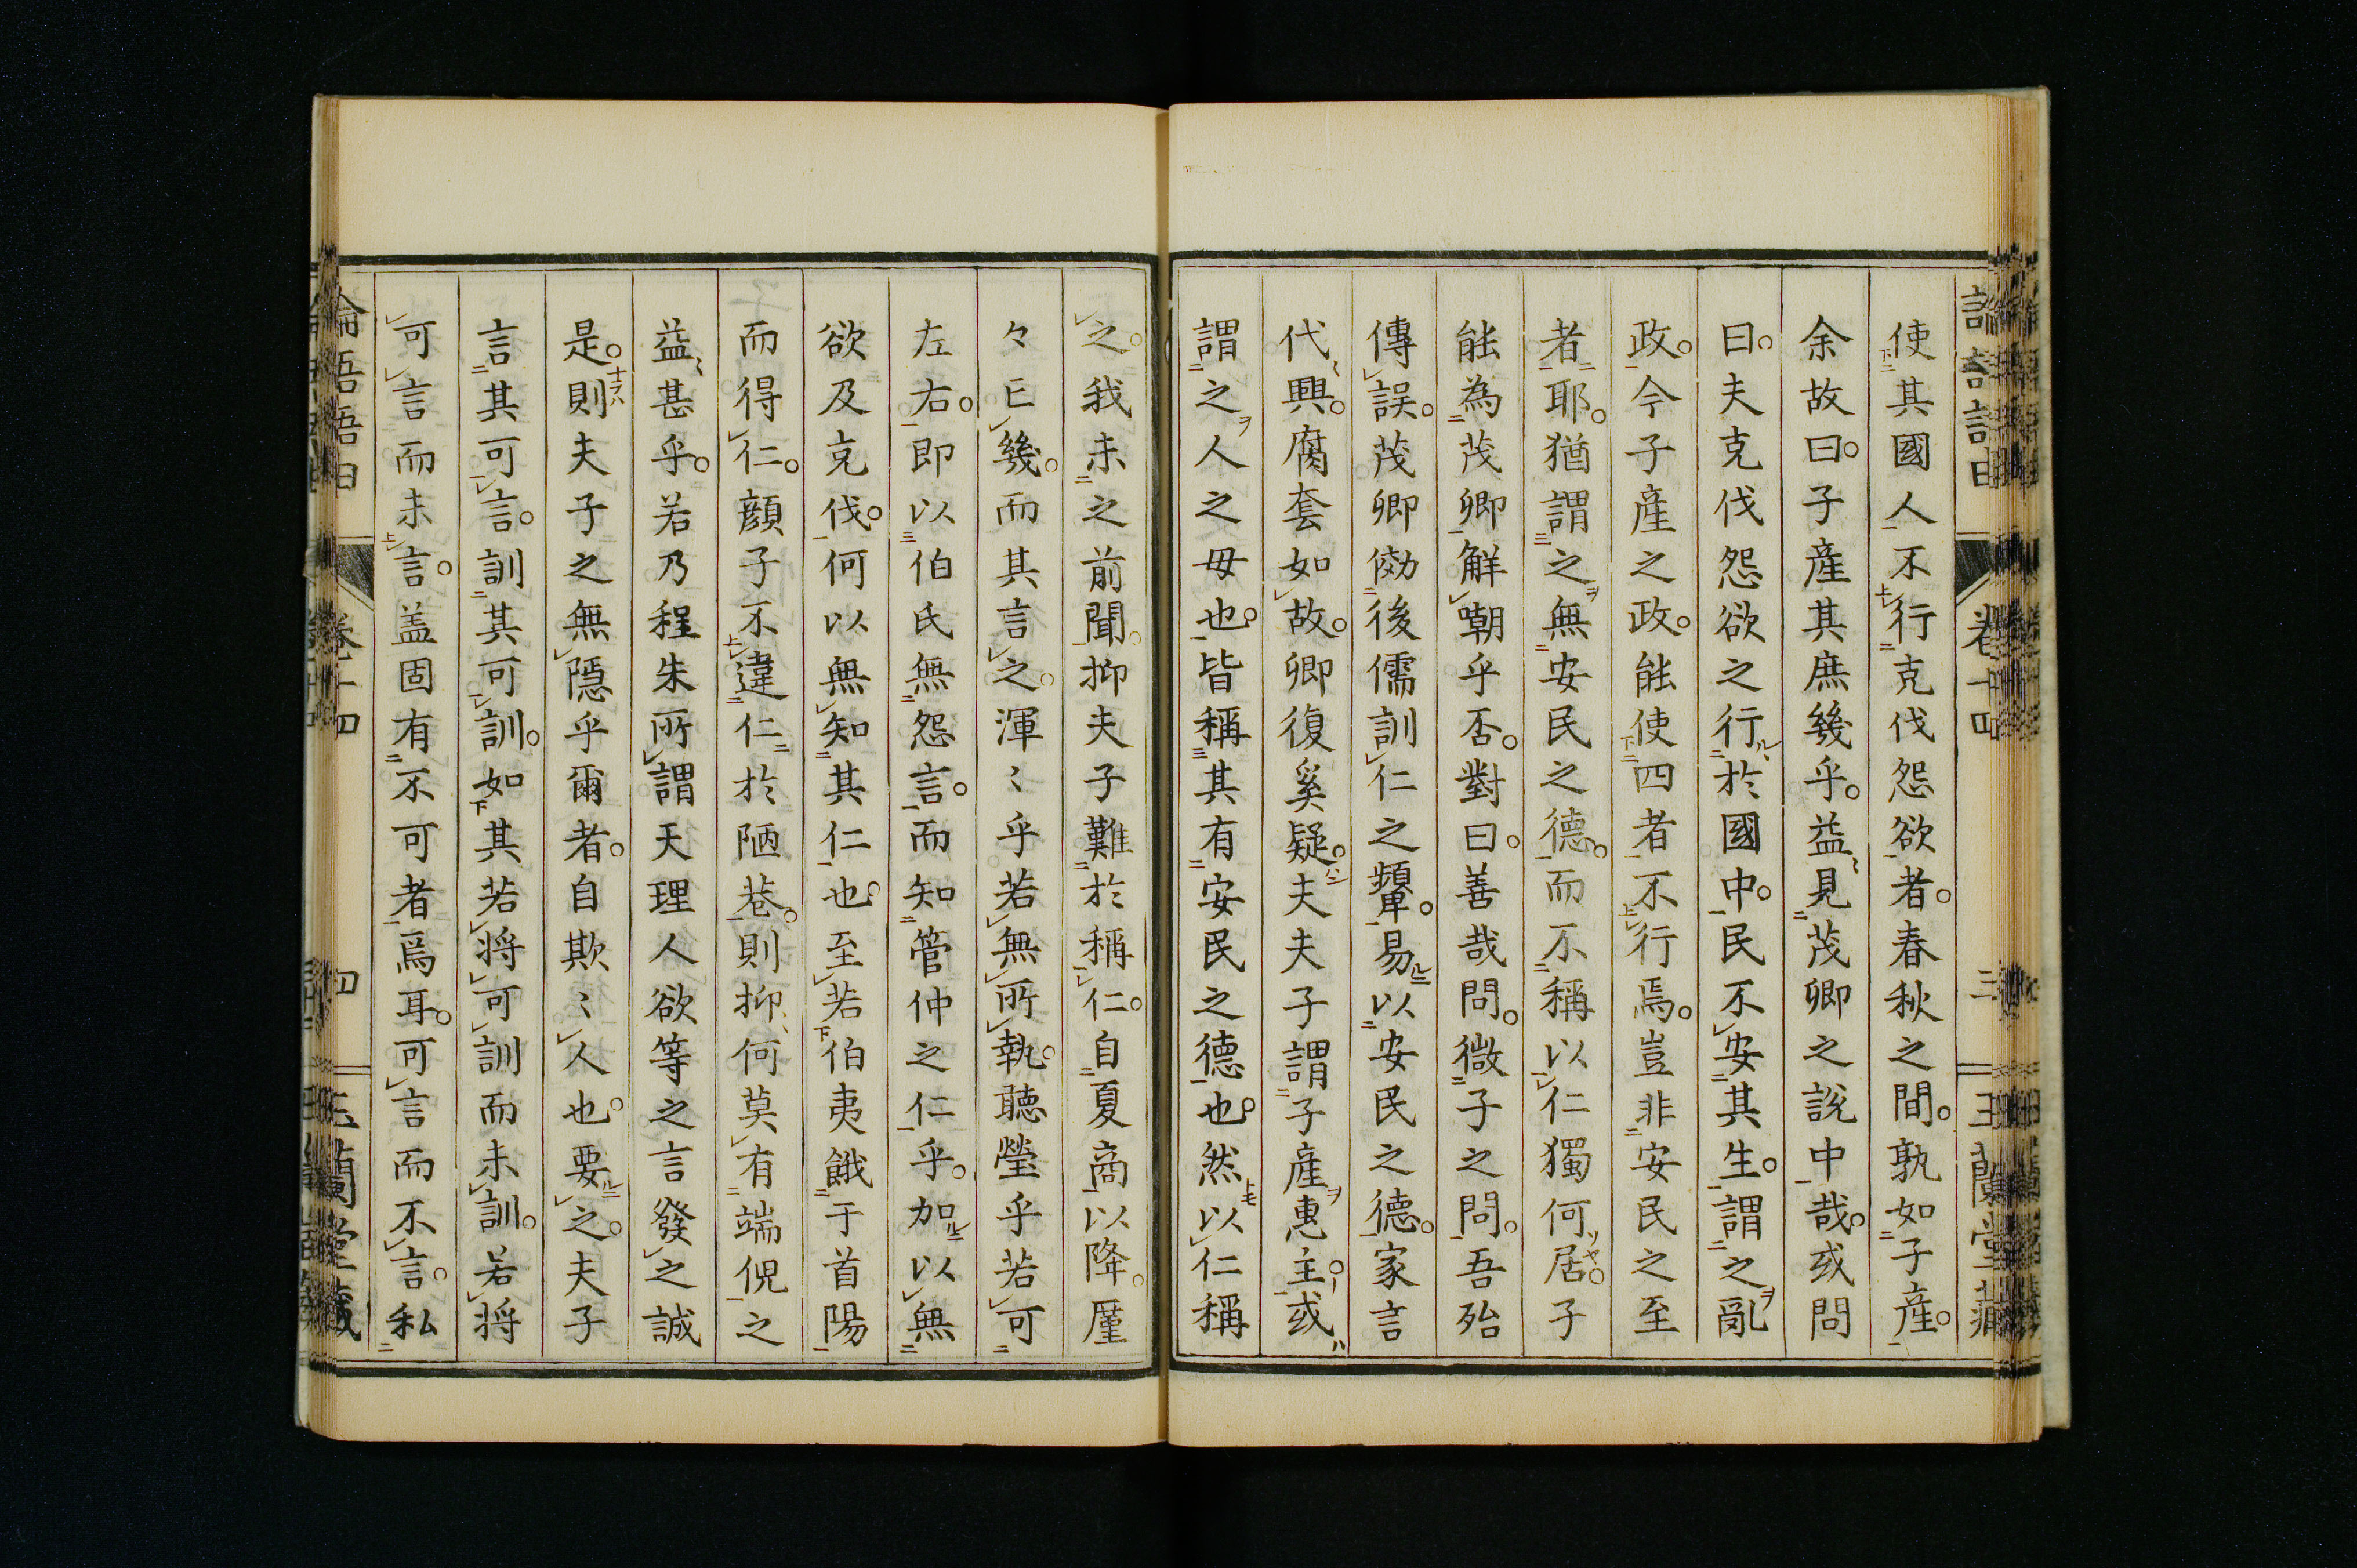 使其國人不行克伐怨欲者。春秋之間。孰如子產。
余故曰。子產其庶幾乎。益見茂卿之說中哉。或問
曰。夫克伐怨欲之行於國中。民不安其生。謂之亂
政。今子產之政。能使四者不行焉。豈非安民之至
者耶。猶謂之無安民之德。而不稱以仁獨何居。子
能為茂卿解嘲乎否。對曰。善哉問。微子之問。吾殆
傳誤。茂卿傚後儒訓仁之顰。易以安民之德。家言
代興。腐套如故。卿復奚疑。夫夫子謂子產惠主。或
謂之人之母也。皆稱其有安民之德也。然以仁稱
之。我未之前聞。抑夫子難於稱仁。自夏商以降。厪
々已幾。而其言之。渾〻乎若無所執。聽瑩乎若可
左右。即以伯氏無怨言。而知管仲之仁乎。加以無
欲及克伐。何以無知其仁也。至若伯夷餓于首陽
而得仁。顏子不違仁於陋巷。則抑何莫有端倪之
益甚乎。若乃程朱所謂天理人欲等之言發之誠
是。則夫子之無隱乎爾者。自欺〻人也。要之。夫子
言其可言。訓其可訓。如其若將可訓而未訓。若將
可言而未言。盖固有不可者焉耳。可言而不言。私
卷十四
三
玉蘭堂藏
論語語曰
卷十四
四
玉蘭堂藏